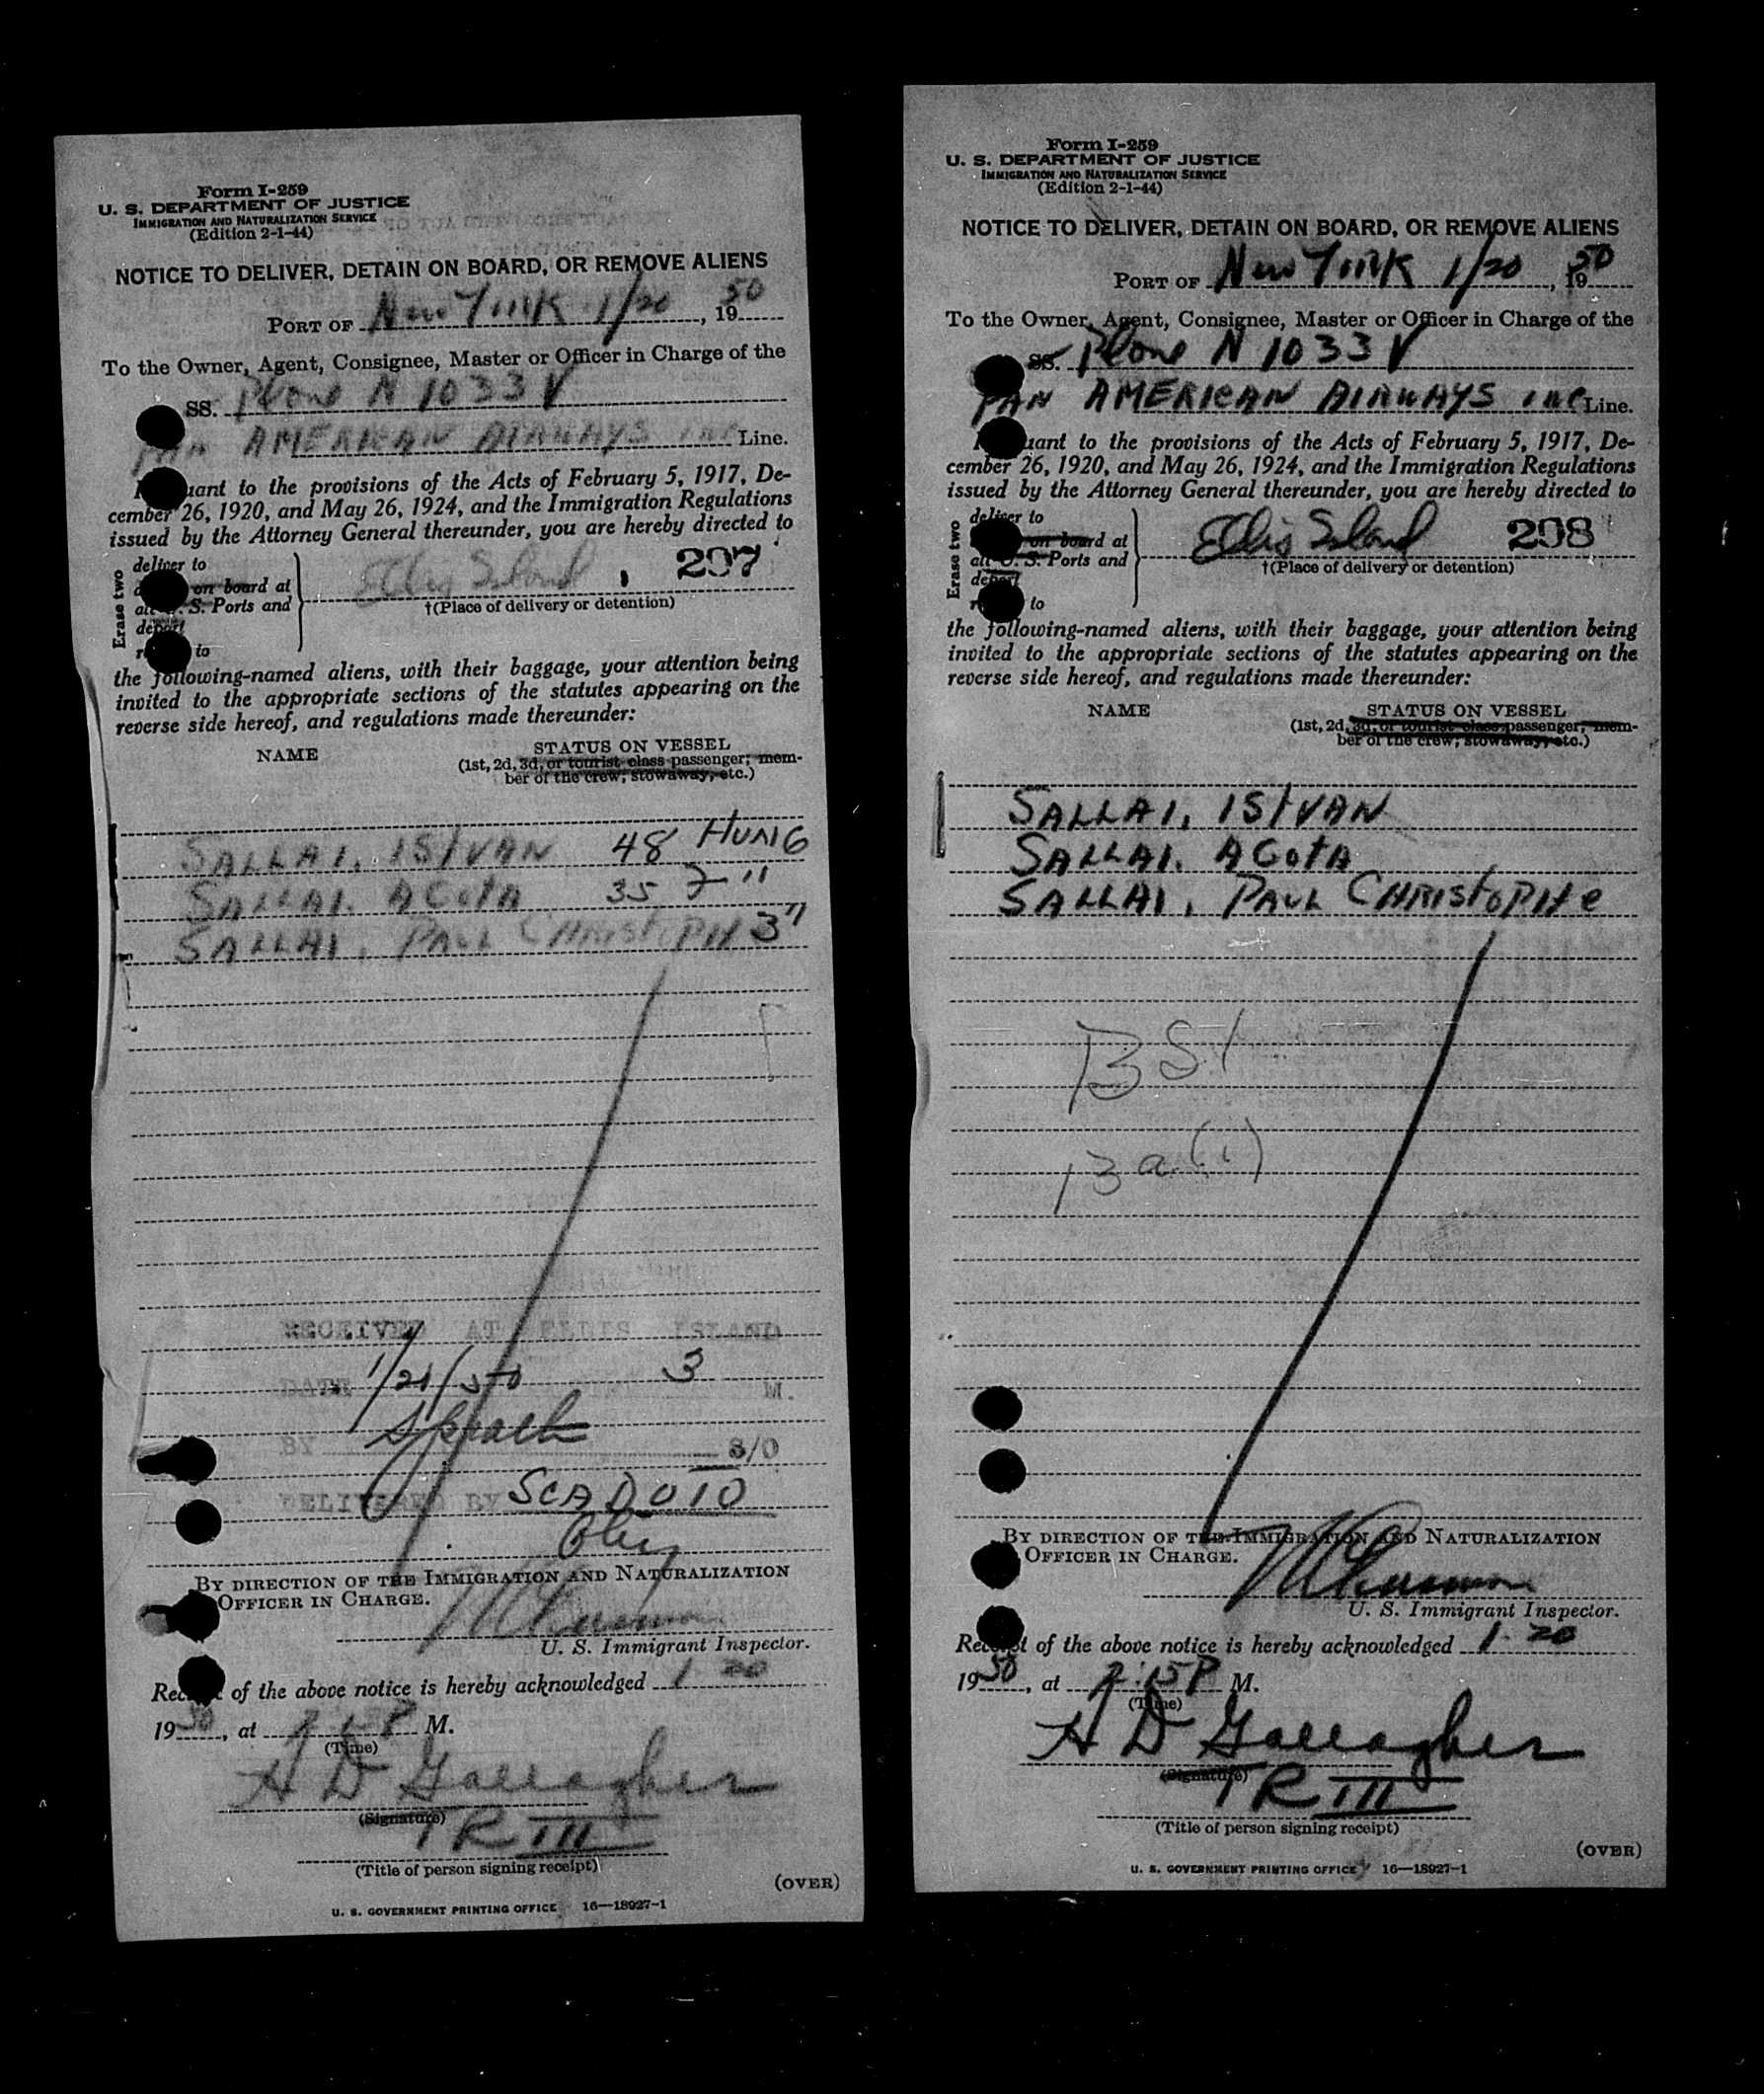 Form I-259
U. S. DEPARTMENT OF JUSTICE
IMMIGRATION AND NATURALIZATION SERVICE
(Edition 2-1-44)
NOTICE TO DELIVER, DETAIN ON BOARD, OR REMOVE ALIENS
PORT OF New York 1/20, 1950
To the Owner, Agent, Consignee, Master or Officer in Charge of the
SS. Plane N 1033 V
PAN AMERICAN AIRWAYS INC Line.
uant to the provisions of the Acts of February 5, 1917, De-
cember 26, 1920, and May 26, 1924, and the Immigration Regulations
issued by the Attorney General thereunder, you are hereby directed to
Erase two
deliver to
on board at
all U. S. Ports and
depart
to
Ellis Island 207
†(Place of delivery or detention)
the following-named aliens, with their baggage, your attention being
invited to the appropriate sections of the statutes appearing on the
reverse side hereof, and regulations made thereunder:
NAME STATUS ON VESSEL
(1st, 2d, 3d, or tourist class passenger; mem-
ber of the crew; stowaway, etc.)
SALLAI, ISTVAN 48 HUNG
SALLAI. AGOTA 35 "
SALLAI, PAUL CHRISTOPH 3 "
RECEIVED AT ELLIS ISLAND
DATE 1/20/50 3 M.
BY S/O
DELIVERED BY SCADUTO
BY DIRECTION OF THE IMMIGRATION AND NATURALIZATION
OFFICER IN CHARGE.
U. S. Immigrant Inspector.
Receipt of the above notice is hereby acknowledged 1-20
1950, at P M.
(Time)
A D Gallagher
(Signature)
TR III
(Title of person signing receipt)
(OVER)
U. S. GOVERNMENT PRINTING OFFICE 16—18927-1
Form I-259
U. S. DEPARTMENT OF JUSTICE
IMMIGRATION AND NATURALIZATION SERVICE
(Edition 2-1-44)
NOTICE TO DELIVER, DETAIN ON BOARD, OR REMOVE ALIENS
PORT OF New York 1/20, 1950
To the Owner, Agent, Consignee, Master or Officer in Charge of the
SS. Plane N 1033 V
PAN AMERICAN AIRWAYS INC Line.
uant to the provisions of the Acts of February 5, 1917, De-
cember 26, 1920, and May 26, 1924, and the Immigration Regulations
issued by the Attorney General thereunder, you are hereby directed to
Erase two
deliver to
on board at
all U. S. Ports and
depart
to
Ellis Island 208
†(Place of delivery or detention)
the following-named aliens, with their baggage, your attention being
invited to the appropriate sections of the statutes appearing on the
reverse side hereof, and regulations made thereunder:
NAME STATUS ON VESSEL
(1st, 2d, 3d, or tourist class passenger, mem-
ber of the crew, stowaway, etc.)
SALLAI, ISTVAN
SALLAI. AGOTA
SALLAI, PAUL CHRISTOPHe
BSI
13 a (1)
BY DIRECTION OF THE IMMIGRATION AND NATURALIZATION
OFFICER IN CHARGE.
U. S. Immigrant Inspector.
Receipt of the above notice is hereby acknowledged 1-20
1950, at 2:15 P M.
(Time)
A D Gallagher
(Signature)
TR III
(Title of person signing receipt)
(OVER)
U. S. GOVERNMENT PRINTING OFFICE 16—18927-1